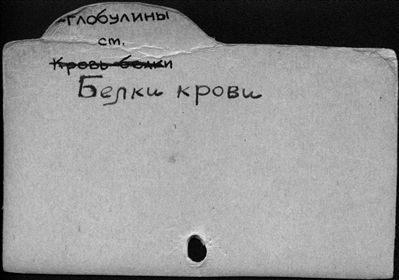 -глобулины
ст.
Кровь белки
Белки крови